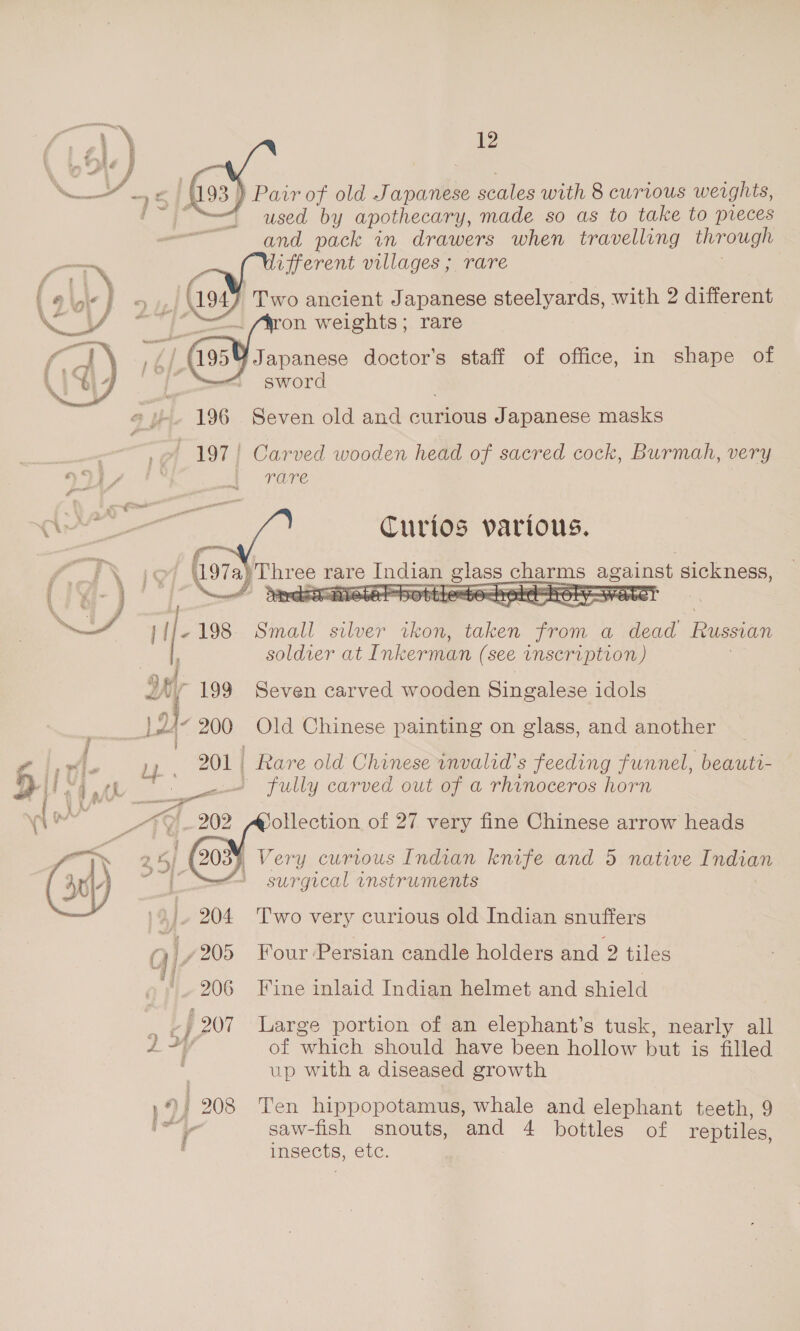 12
193 Pair of old Japanese scales with 8 curious weights,
used by apothecary, made so as to take to pieces
and pack in drawers when travelling through
different villages ; rare
194 Two ancient Japanese steelyards, with 2 different
iron weights; rare
195 Japanese doctor's staff of office, in shape of
sword
196 Seven old and curious Japanese masks
197 Carved wooden head of sacred cock, Burmah, very
rare
Curios various.
197a Three rare Indian glass charms against sickness,
holy water
198 Small silver ikon, taken from a dead Russian
soldier at Inkerman (see inscription)
199 Seven carved wooden Singalese idols
200 Old Chinese painting on glass, and another
201 Rare old Chinese invalid's feeding funnel, beauti-
fully carved out of a rhinoceros horn
202 Collection of 27 very fine Chinese arrow heads
203 Very curious Indian knife and 5 native Indian
surgical instruments
204 Two very curious old Indian snuffers
205 Four Persian candle holders and 2 tiles
206 Fine inlaid Indian helmet and shield
207 Large portion of an elephant's tusk, nearly all
of which should have been hollow but is filled
up with a diseased growth
208 Ten hippopotamus, whale and elephant teeth, 9
saw-fish snouts, and 4 bottles of reptiles,
insects, etc.